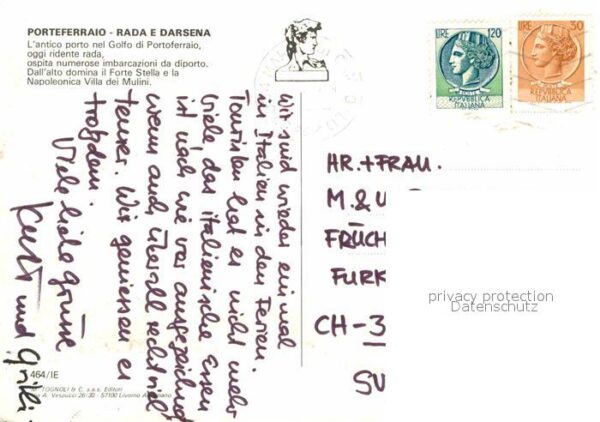 PORTEFERRAIO - RADA E DARSENA
L'antico porto nel Golfo di Portoferraio,
oggi ridente rada,
ospita numerose imbarcazioni da diporto.
Dall'alto domina il Forte Stella e la
Napoleonica Villa dei Mulini.
LIRE 120
REPVBBLICA
ITALIANA
LIRE 50
REPVBBLICA
ITALIANA
Wir sind wieder einmal
in Italien in den Ferien.
Touristen hat es nicht mehr
viele, das italienische Essen
ist nach wie vor ausgezeichnet
wenn auch überall recht viel
teurer. Wir geniessen es
trotzdem.
Viele liebe Grüsse
Kurt und
HR. + FRAU.
M. &
FRÜCH
FURK
CH-3
privacy protection
Datenschutz
464/IE
TOGNOLI & C. s.a.s. Editori
A. Vespucci 26-30 - 57100 Livorno